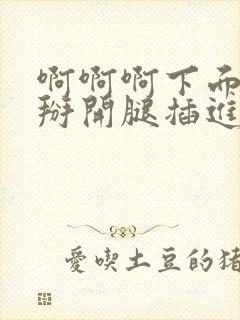 啊啊啊下面
掰開腿插進
愛喫土豆的猪